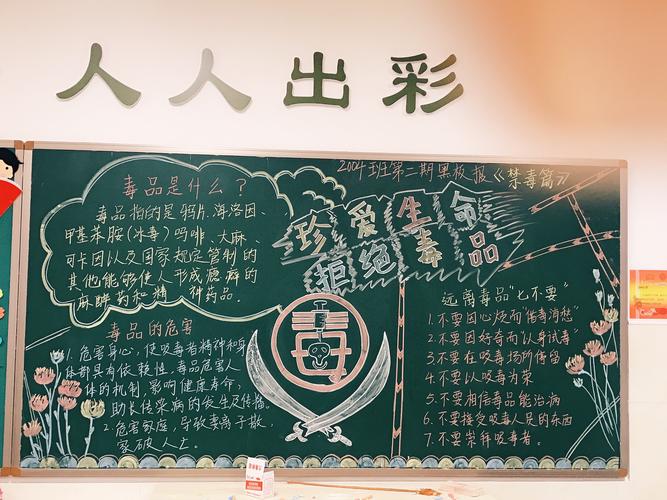 人人出彩
2004班第二期黑板报《禁毒篇》
珍爱生命
拒绝毒品
毒品是什么？
毒品指的是鸦片、海洛因、
甲基苯胺(冰毒)吗啡、大麻、
可卡因以及国家规定管制的
其他能够使人形成瘾癖的
麻醉药和精神药品。
毒品的危害
1.危害身心，使吸毒者精神和身
体都具有依赖性，毒品危害人
体的机制，影响健康寿命，
助长传染病的发生及传播。
2.危害家庭，导致妻离子散，
家破人亡。
毒
远离毒品"七不要"
1.不要因心烦而"借毒消愁"
2.不要因好奇而"以身试毒"
3.不要在吸毒场所停留
4.不要以吸毒为荣
5.不要相信毒品能治病
6.不要接受吸毒人员的东西
7.不要崇拜吸毒者。